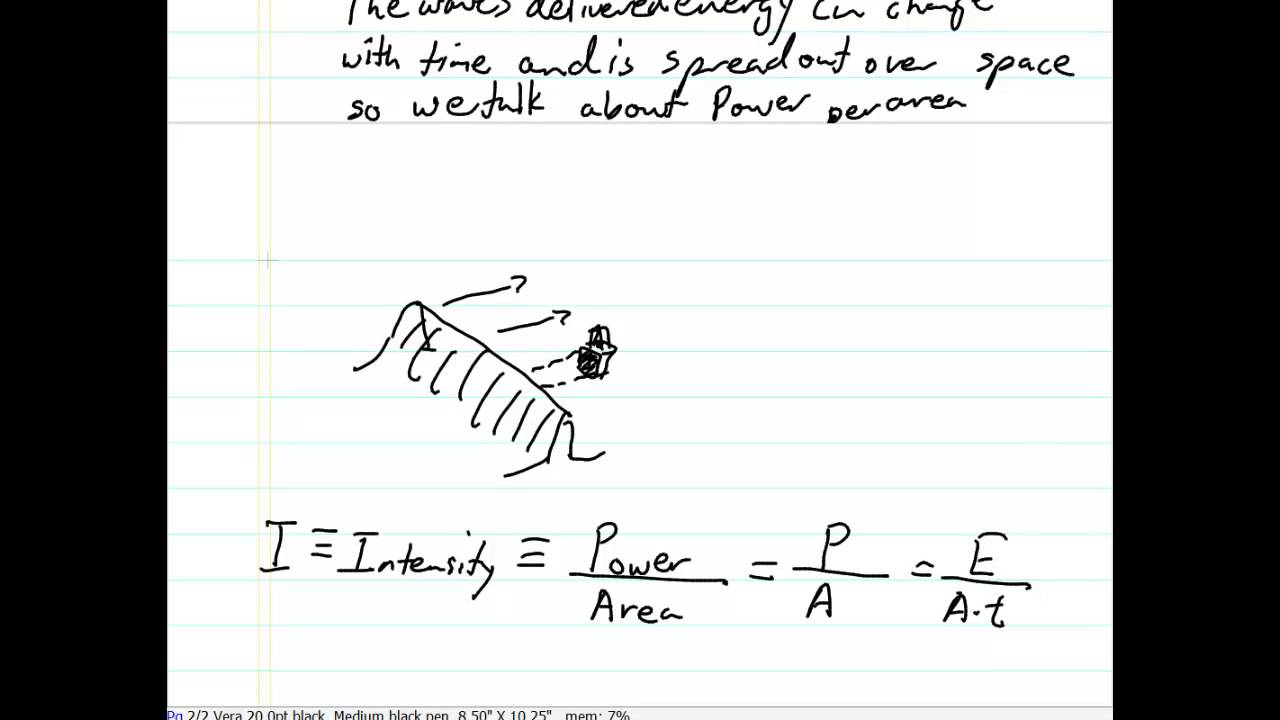 The waves delivered energy can change
with time and is spread out over space
so we talk about Power per area
A
I ≡ Intensity ≡ Power/Area = P/A = E/A·t
Pg 2/2 Vera 20.0pt black Medium black pen 8.50" X 10.25" mem: 7%